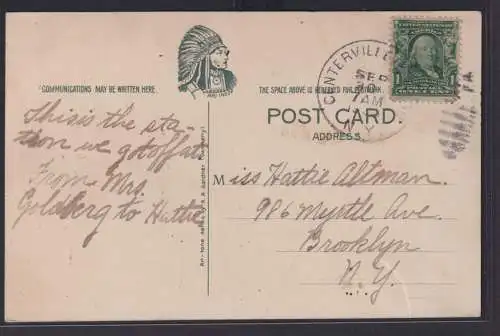 COMMUNICATIONS MAY BE WRITTEN HERE.
THE SPACE ABOVE IS RESERVED FOR POSTMARK.
POST CARD.
ADDRESS.
CENTERVILLE
SEP
AM
N.Y.
1
This is the sta-
tion we got off at
From Mrs.
Goldberg to Hattie
Miss Hattie Altman.
986 Myrtle Ave.
Brooklyn
N. Y.